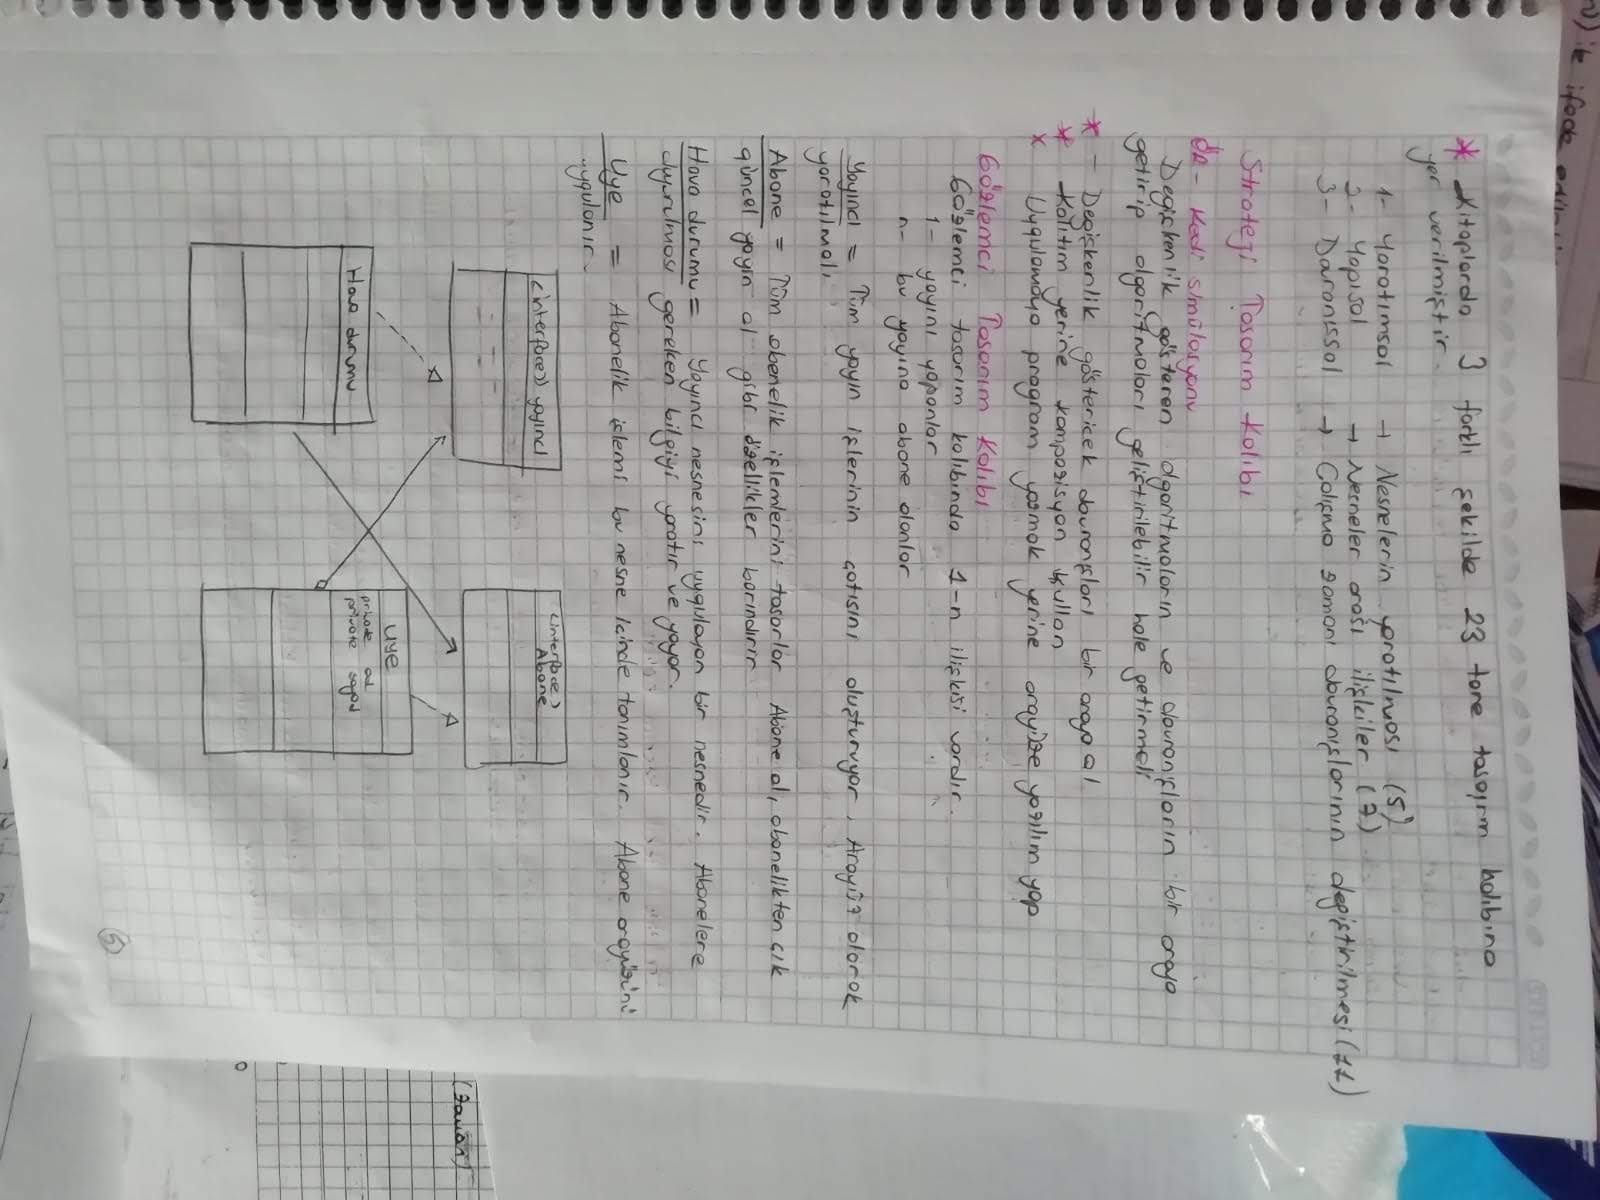 * Kitaplarda 3 farklı şekilde 23 tane tasarım kalıbına
yer verilmiştir.
1- Yaratımsal → Nesnelerin yaratılması (5)
2- Yapısal → Nesneler arası ilişkiler (7)
3- Davranışsal → Çalışma zamanı davranışlarının değiştirilmesi (11)
Strateji Tasarım Kalıbı
ör- Kedi simülasyonu
Değişkenlik gösteren algoritmaların ve davranışların bir araya
getirip algoritmaları geliştirilebilir hale getirmeli
* - Değişkenlik gösterecek davranışları bir araya al.
* Kalıtım yerine kompozisyon kullan
* Uygulamaya program yazmak yerine arayüze yazılım yap
Gözlemci Tasarım Kalıbı
Gözlemci tasarım kalıbında 1-n ilişkisi vardır.
1- yayını yapanlar
n- bu yayına abone olanlar
Yayıncı = Tüm yayın işlerinin çatısını oluşturuyor, Arayüz olarak
yaratılmalı.
Abone = Tüm abonelik işlemlerini tasarlar Abone ol, abonelikten çık
güncel yayın al gibi özellikler barındırır
Hava durumu = Yayıncı nesnesini uygulayan bir nesnedir. Abonelere
duyurulması gereken bilgiyi yaratır ve yayar.
Uye = Abonelik işlemi bu nesne içinde tanımlanır. Abone arayüzünü
uygulanır.
<interface> yayıncı
<interface>
Abone
Hava durumu
uye
private ad
private soyad
5
(zaman)
ile ifade